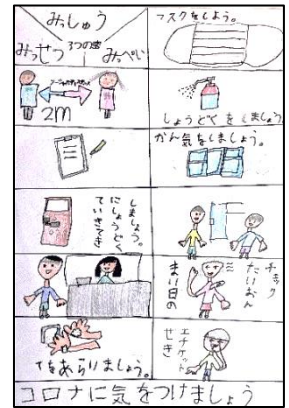 みっしゅう
3つの密
みっせつ
みっぺい
マスクをしよう。
ソーシャルディスタンス
2m
しょうどくをしましょう
かん気をしましょう。
ていきてき
にしょうどく
しましょう。
まい日の
たいおん
チェック
せき
エチケット
てをあらいましょう。
コロナに気をつけましょう